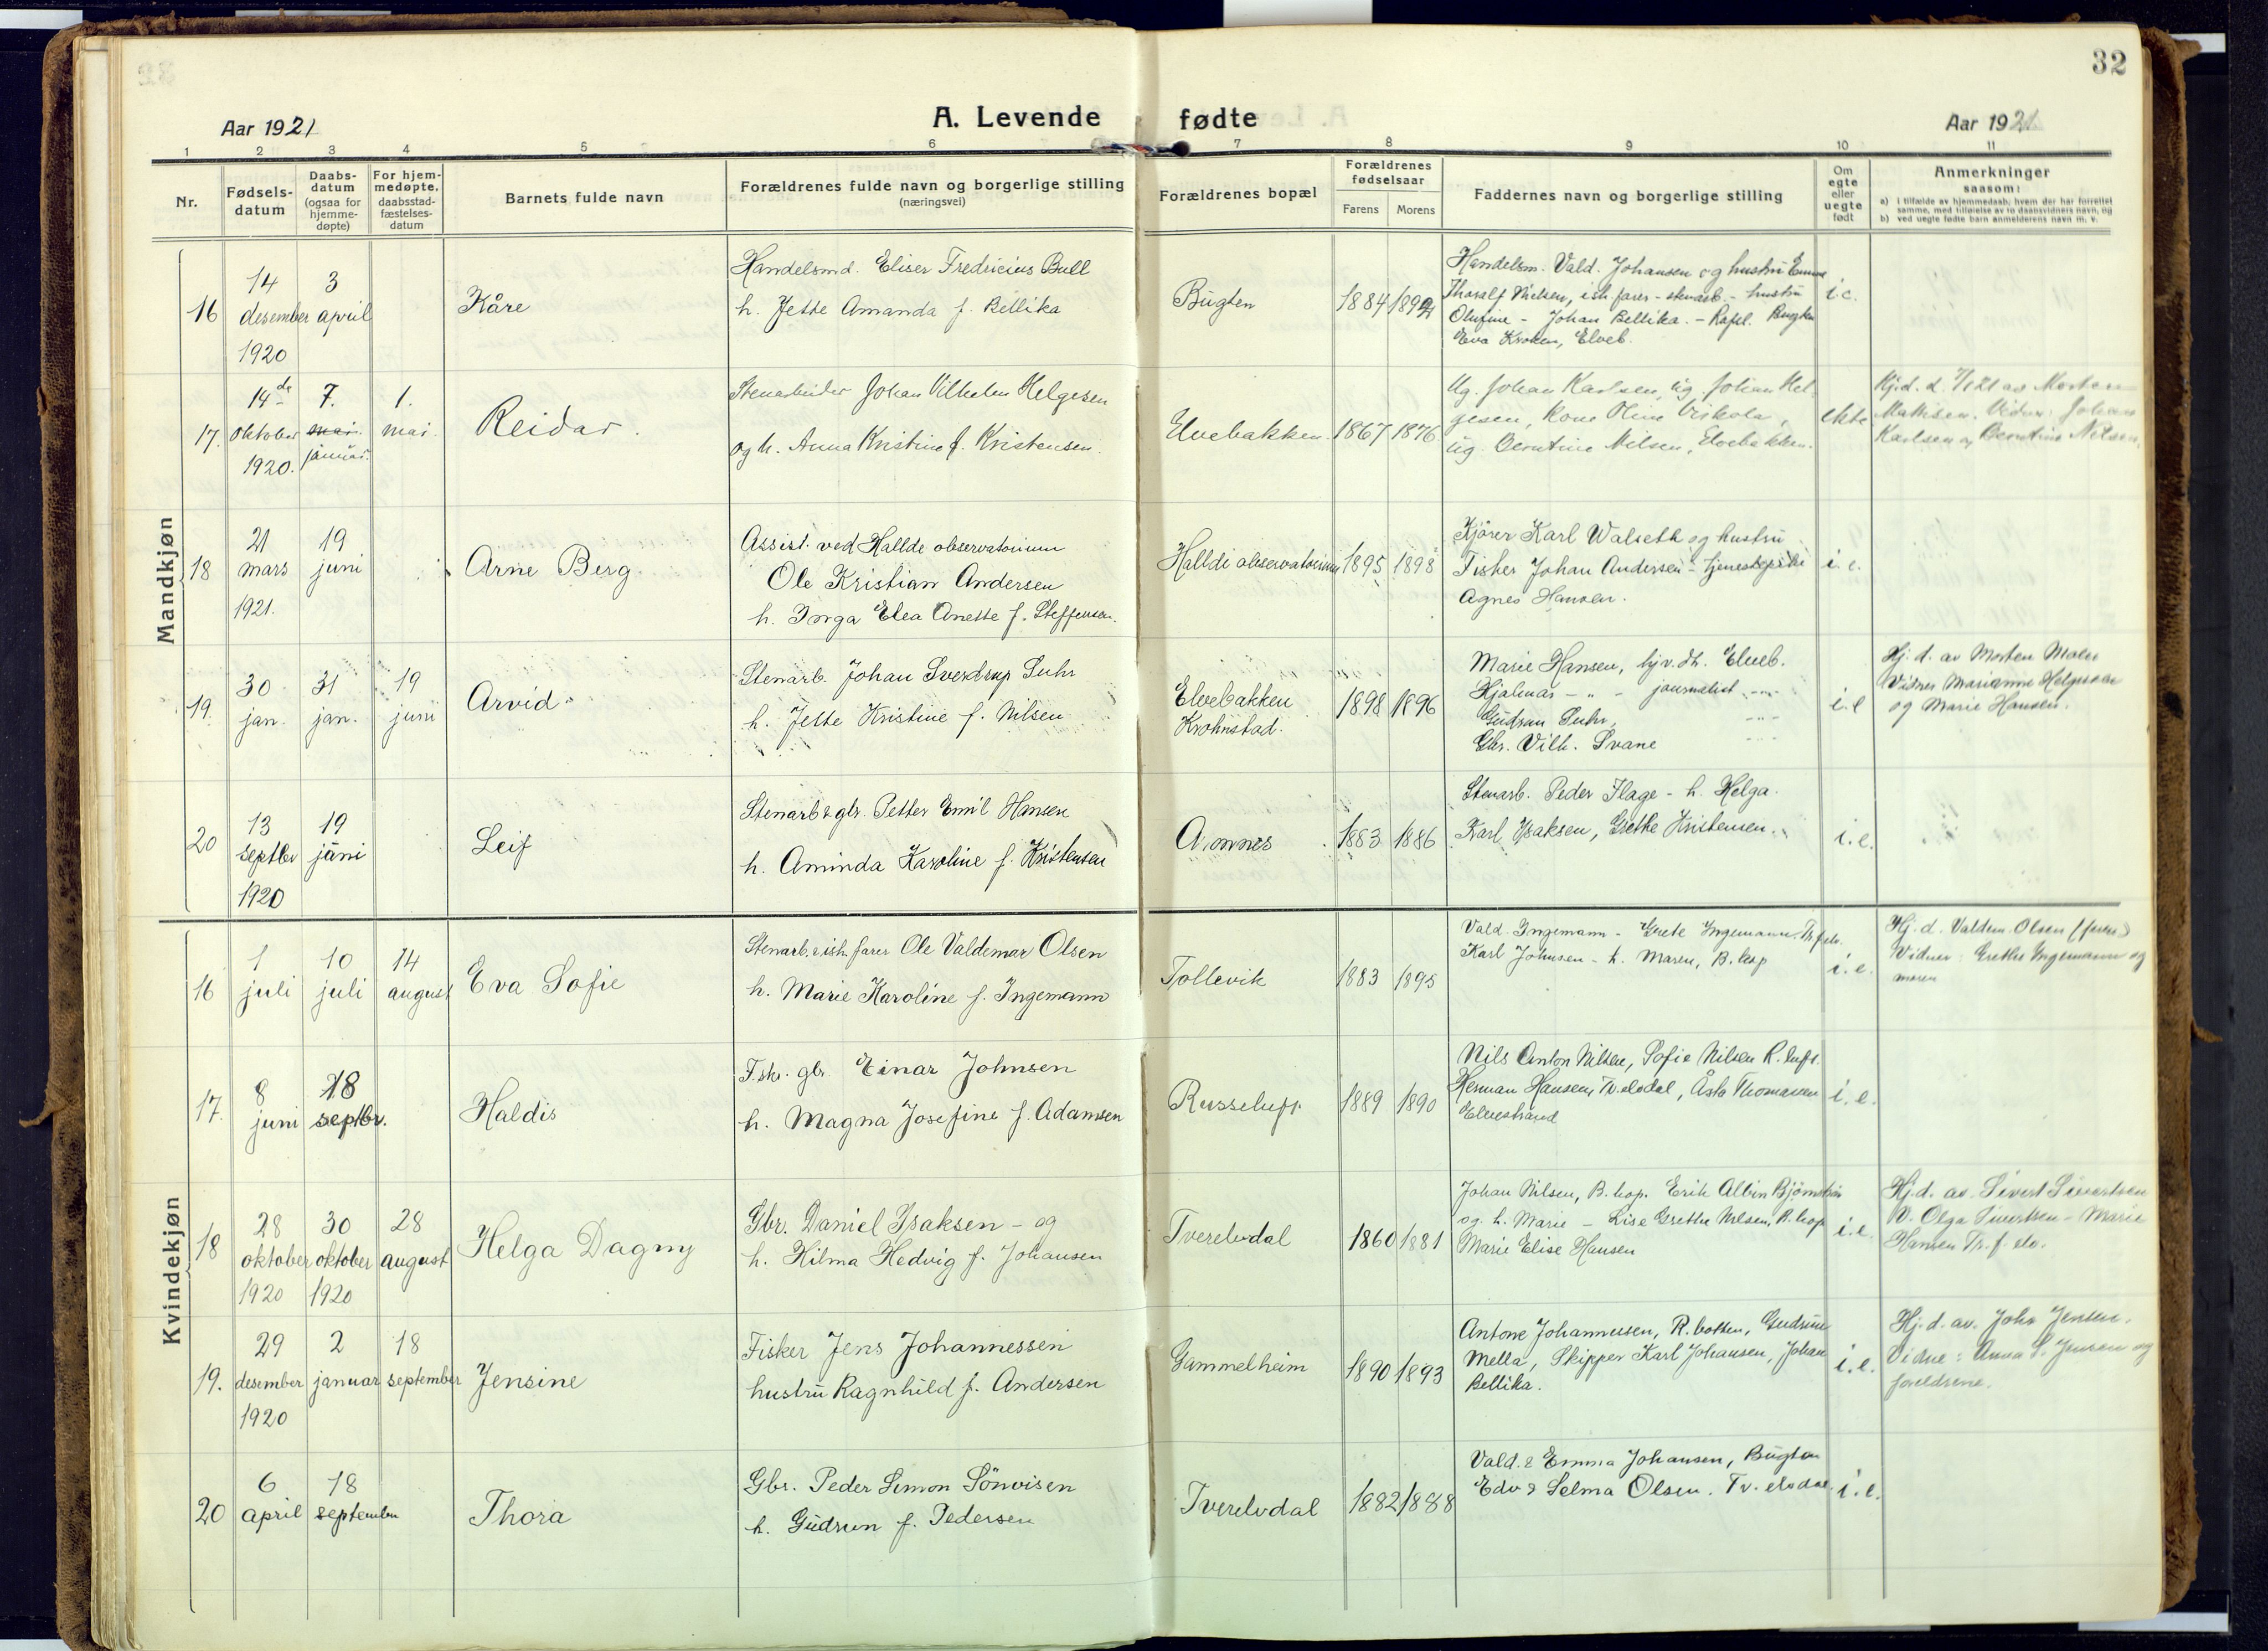 32
A. Levende fødte
Aar 1921
Aar 1921
1 2 3 4 5 6 7 8 9 10 11
Nr.
Fødsels-
datum
Daabs-
datum
(ogsaa for
hjemme-
døpte)
For hjem-
medøpte,
daabsstad-
fæstelses-
datum
Barnets fulde navn
Forældrenes fulde navn og borgerlige stilling
(næringsvei)
Forældrenes bopæl
Forældrenes
fødselsaar
Farens Morens
Faddernes navn og borgerlige stilling
Om
egte
eller
uegte
født
Anmerkninger
saasom:
a) i tilfælde av hjemmedaab, hvem der har forrettet
samme, med tilføielse av to daabsvidners navn, og
b) ved uegte fødte barn anmelderens navn m. v.
Mandkjøn
16
14
desember
1920
3
april
Kåre
Handelsmd. Eliser Fredricius Bull
h. Jette Amanda f. Bellika
Bugten
1884 1892
Handelsm. Vald. Johansen og hustru Emma
Tharalf Nielsen, ish. farer - stenarb. - hustru
Olufine - Johan Bellika. - Rafsb. Bugten
Eva Kroken, Elveb.
i e.
17.
14de
oktober
1920.
7.
mai.
januar.
1.
mai.
Reidar.
Stenarbeider Johan Vilhelm Helgesen
og h. Anna Kristine f. Kristensen.
Elvebakken.
1867 1876
Ug. Johan Karlsen, ug. Johan Hel-
gesen, Kone Oline
ug. Berntine Nilsen, Elvebakken.
ekte
Hj.d. d. 7/1 21 av Morten
Mathisen. Vidner: Johan
Karlsen og Berntine Nilsen.
18
21
mars
1921.
19
juni
Arne Berg.
Assist. ved Hallde observatorium
Ole Kristian Andersen
h. Inga Elea Anette f. Steffensen.
Halldi observatorium
1895 1898
Kjører Karl Walseth og hustru
Fisker Johan Andersen - tjenestepike
Agnes Hansen.
i. e.
19.
30
jan.
31
jan.
19
juni
Arvid.
Stenarb. Johan Sverdrup Suhr
h. Jette Kristine f. Nilsen
Elvebakken
Krohnstad.
1898 1896
Marie Hansen, hjv. dt. Elveb.
Hjalmar - " - journalist -"-
Gudrun Suhr, -"-
Chr. Vilh. Svane -"-
i. e
Hj. d. av Morten
Vidner Marianne Helgesen
og Marie Hansen.
20
13
septbr
1920
19
juni
Leif
Stenarb & gbr. Petter Emil Hansen
h. Aminda Karoline f. Kristensen
Amnes
1883 1886
Stenarb. Peder Flage - h. Helga.
Karl Isaksen, Grethe Kristensen.
i. e.
Kvindekjøn
16
1
juli
10
juli
14
august
Eva Sofie
Stenarb. & ish. farer Ole Valdemar Olsen
h. Marie Karoline f. Ingemann
Tollevik
1883 1895
Vald. Ingemann - Grete Ingemann. Tr.f.elv.
Karl Johnsen - h. Maren, B. hop
i. e.
Hj. d. Valdem. Olsen (faren)
Vidner: Grethe Ingemann og
moren
17.
8
juni
18
septbr.
Haldis
Fisk. gbr. Einar Johnsen
h. Magna Josefine f. Adamsen
Russeluft
1889 1890
Nils Anton Nilsen, Sofie Nilsen R. luft.
Herman Hansen, Tv.elvdal, Åsta Thomassen
Elvestrand
i. e.
18
28
oktober
1920
30
oktober
1920
28
august
Helga Dagny
Gbr. Daniel Isaksen - og
h. Hilma Hedvig f. Johansen
Tverelvdal
1860 1881
Johan Nilsen, B. hop. Erik Albin
og h. Marie - Lise Grethe Nilsen, B. hop
Marie Elise Hansen
i. e.
Hj. d. av Sivert Sivertsen
V. Olga Sivertsen - Marie
Hansen Tr. f. elv.
19.
29
desember
1920
2
januar
18
september
Jensine
Fisker Jens Johannessen
hustru Ragnhild f. Andersen
Gammelheim
1890 1893
Antone Johannesen, R. botten, Gudrun
Mella, Skipper Karl Johansen, Johan
Bellika.
i. e.
Hj. d. av. John Jensen.
Vidne: Anna S. Jensen og
foreldrene.
20
6
april
18
september
Thora
Gbr. Peder Simon Sönvisen
h. Gudrun f. Pedersen
Tverelvdal
1882 1888
Vald. & Emma Johansen, Bugten
Edv & Selma Olsen. Tv. elvdal.
i. e.